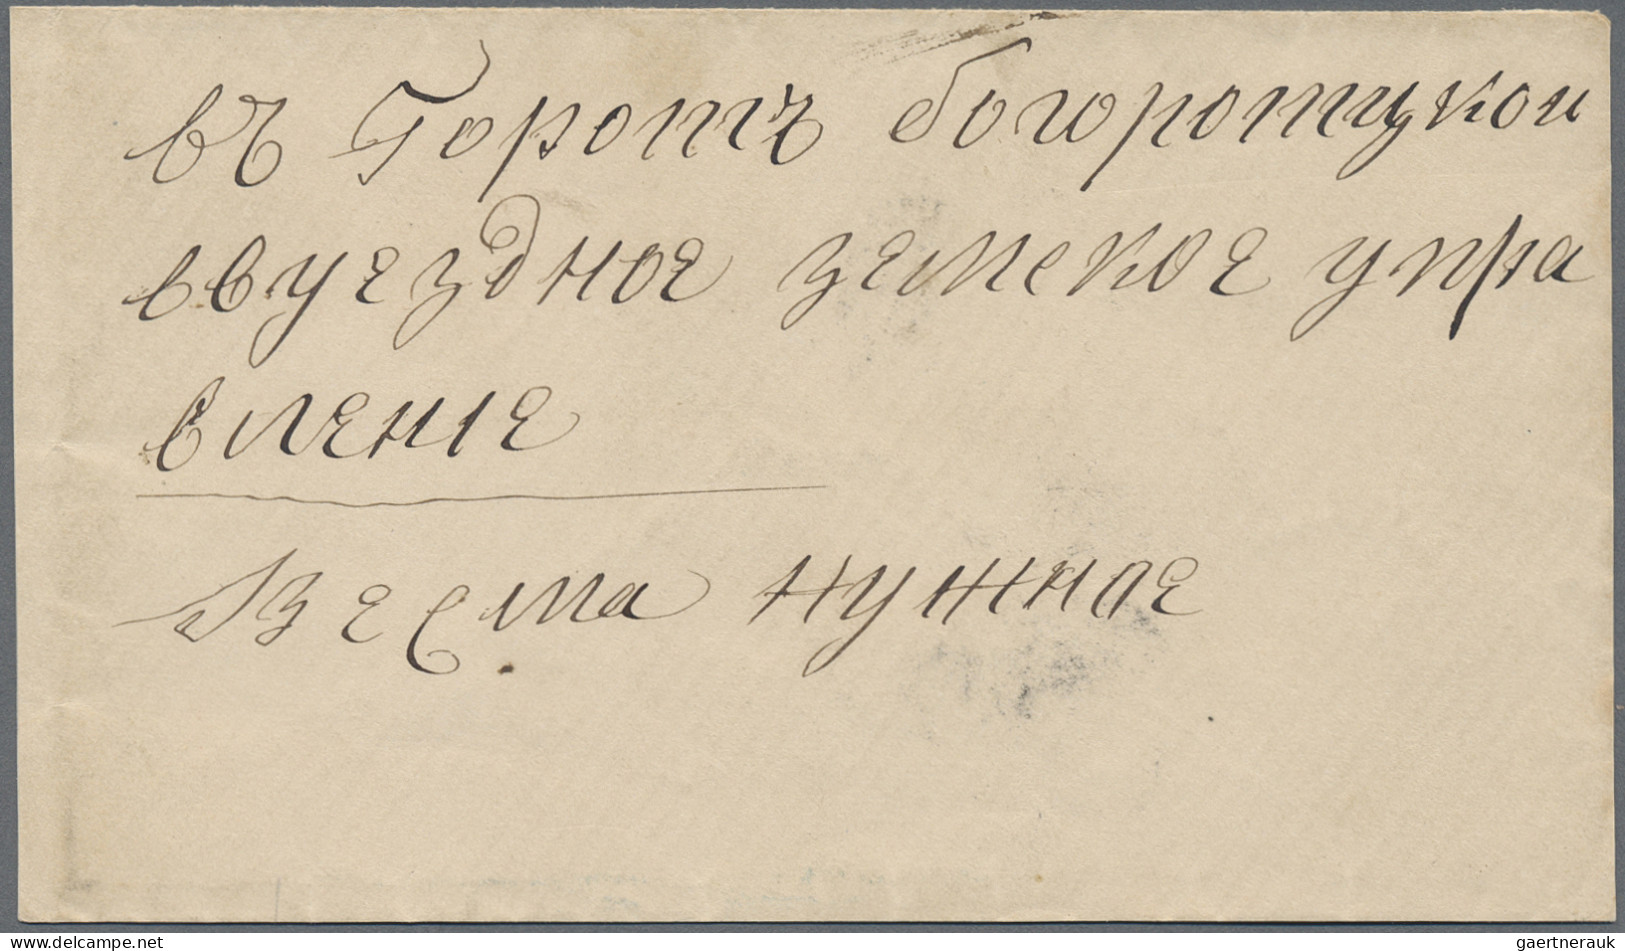 въ Горотъ богоротцкои
ввуездное земское упра
вление
Весма нужное
delcampe.net
gaertnerauk